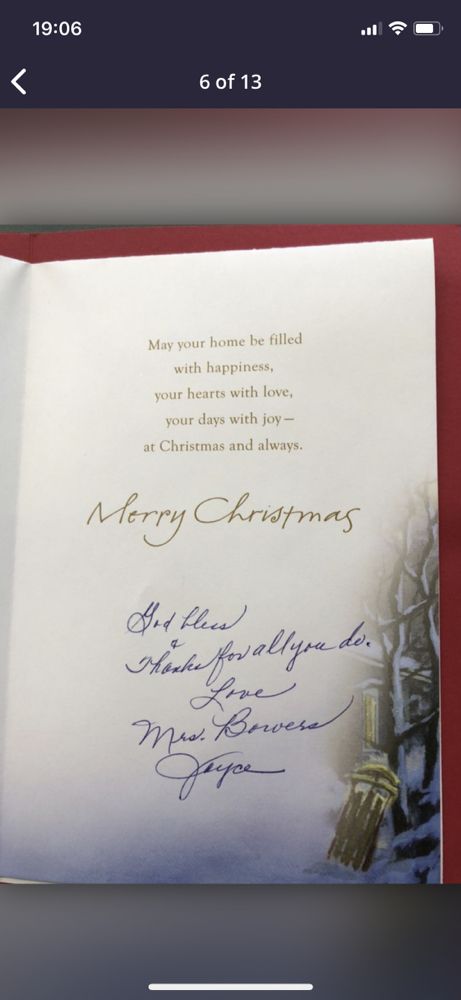 19:06
6 of 13
May your home be filled
with happiness,
your hearts with love,
your days with joy—
at Christmas and always.
Merry Christmas
God bless
&
Thanks for all you do.
Love
Mrs. Bowers
Joyce